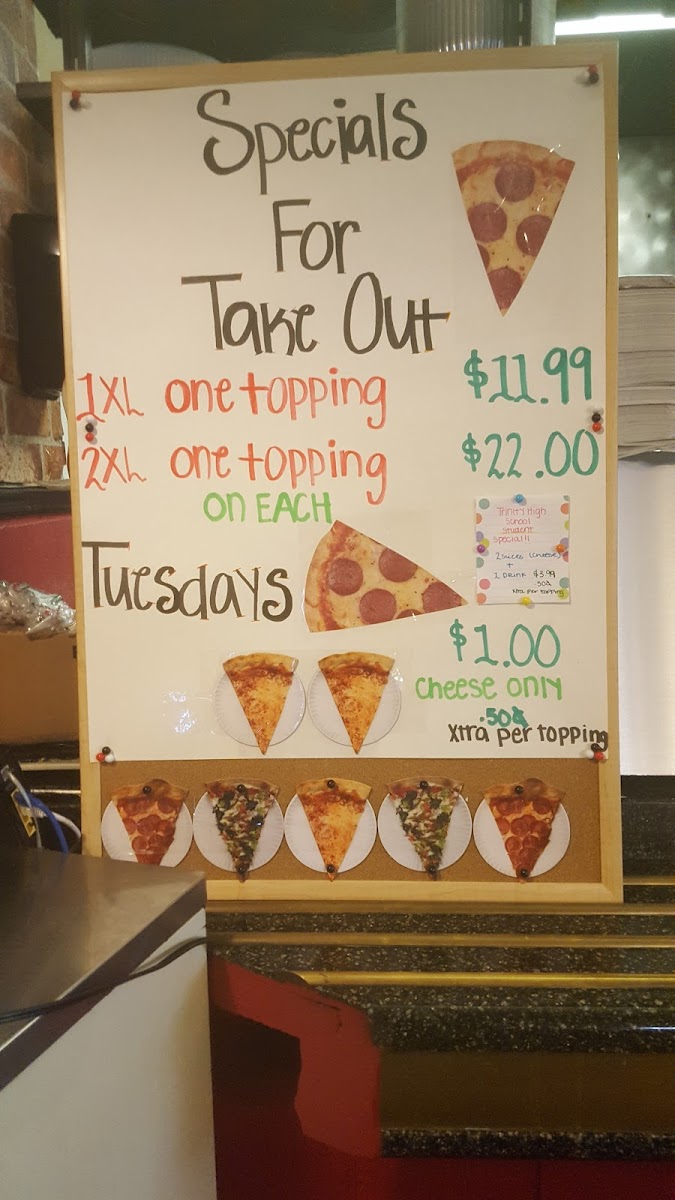 Specials
For
Take Out
1XL one topping $11.99
2XL one topping $22.00
on EACH
Trinity High
School
Student
Special!!
2 Slices (cheese)
+
1 Drink $3.99
.50¢
Xtra per topping
Tuesdays
$1.00
cheese only
.50¢
Xtra per topping